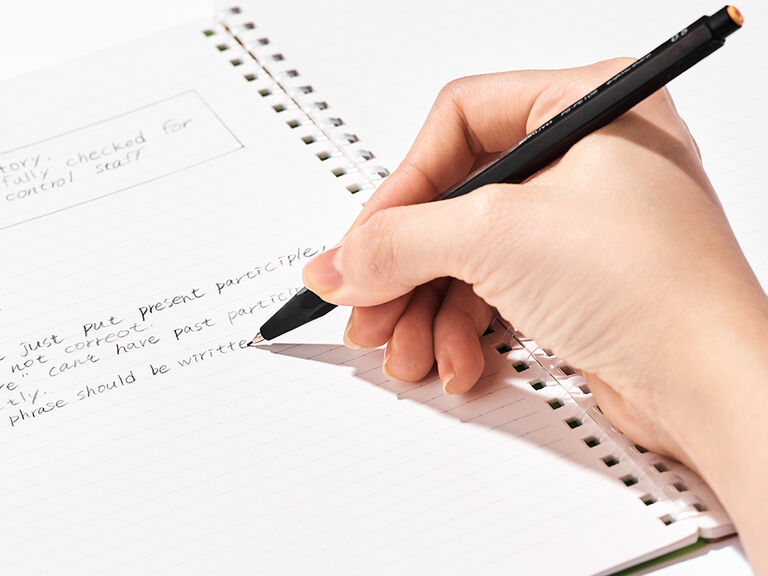 tory,
fully checked for
control staff
just put present participle,
not correct.
e" can't have past partici
tly.
phrase should be wiritte
0.5